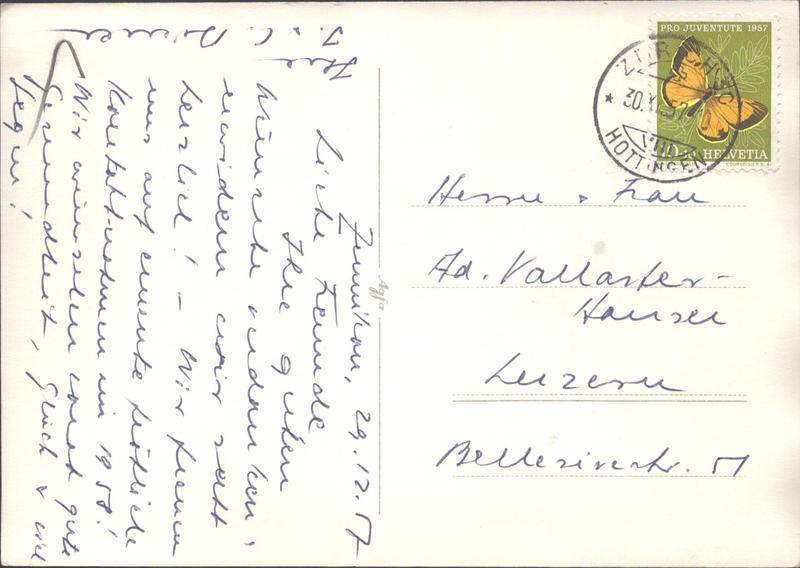 Zumikon, 29.12.57
Liebe Freunde
Ihre guten
Wünsche verdanken,
erwidern wir sehr
herzlich! – Wir freuen
uns auf erneute fröhliche
Kontaktnahmen im 1958!
Wir wünschen vorab gute
Gesundheit, Glück & viel
Segen!
PRO JUVENTUTE 1957
HELVETIA
COURVOISIER S.A.
ZÜRICH
30.XII.57
VIII
HOTTINGEN
Agfa
Herrn & Frau
Ad. Vallaster-
Hansen
Luzern
Bellerivestr. 51